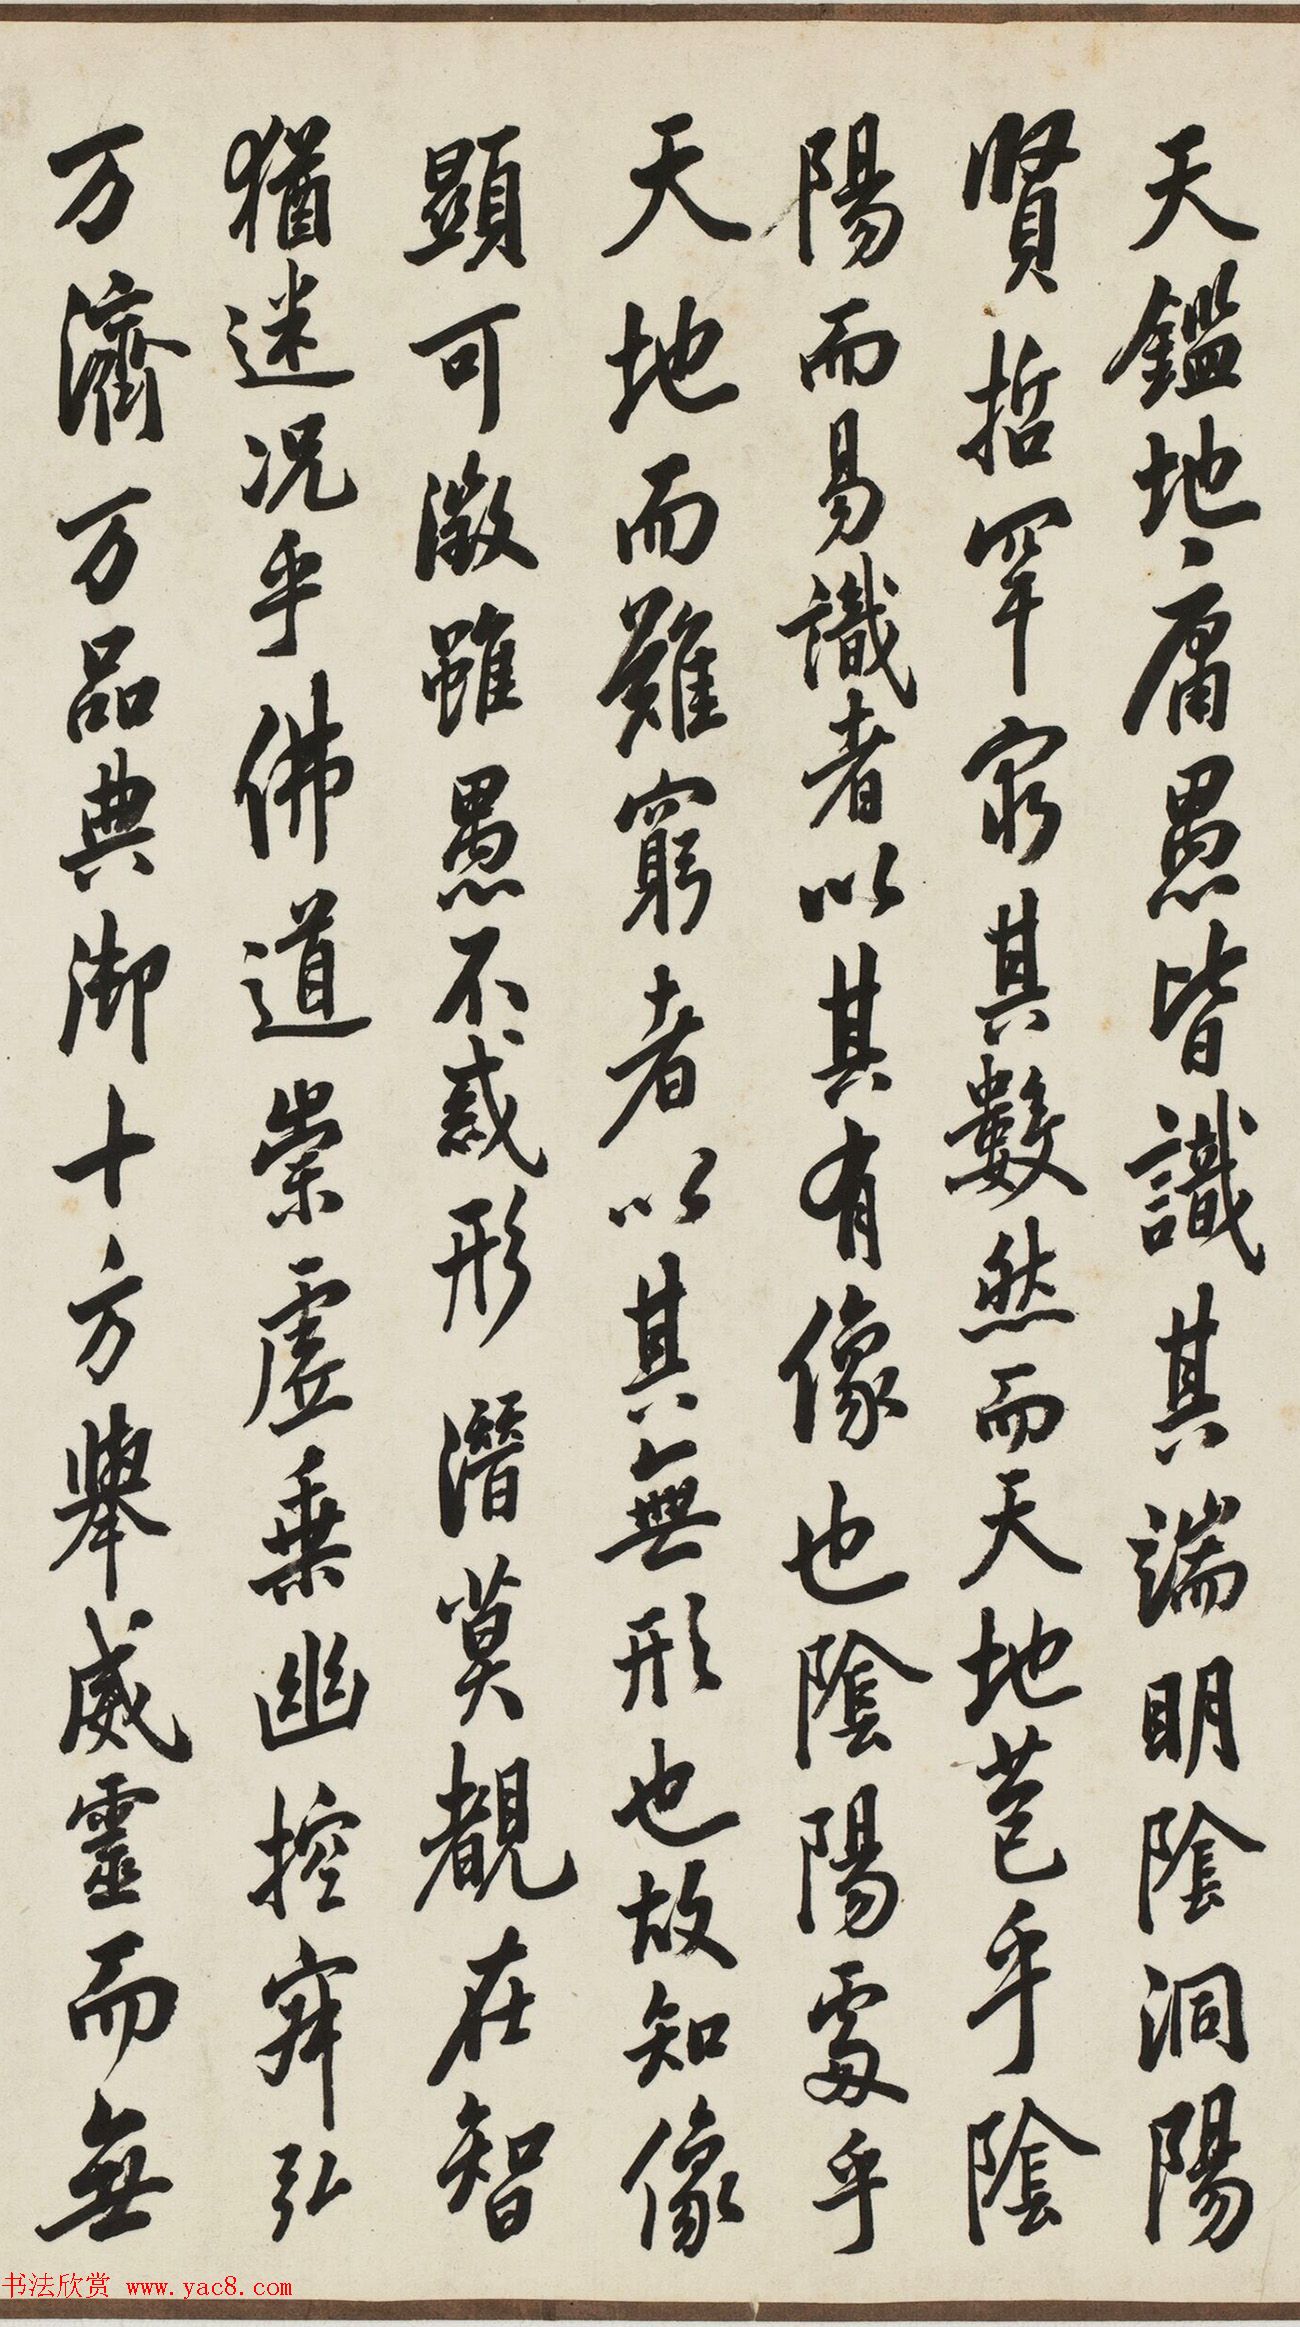 天鑑地庸愚皆識其端明陰洞陽
賢哲罕窮其數然而天地苞乎陰
陽而易識者以其有像也陰陽處乎
天地而難窮者以其無形也故知像
顯可徵雖愚不惑形潛莫覩在智
猶迷况乎佛道崇虛乗幽控寂弘
万濟万品典御十方舉威靈而無
书法欣赏 www.yac8.com